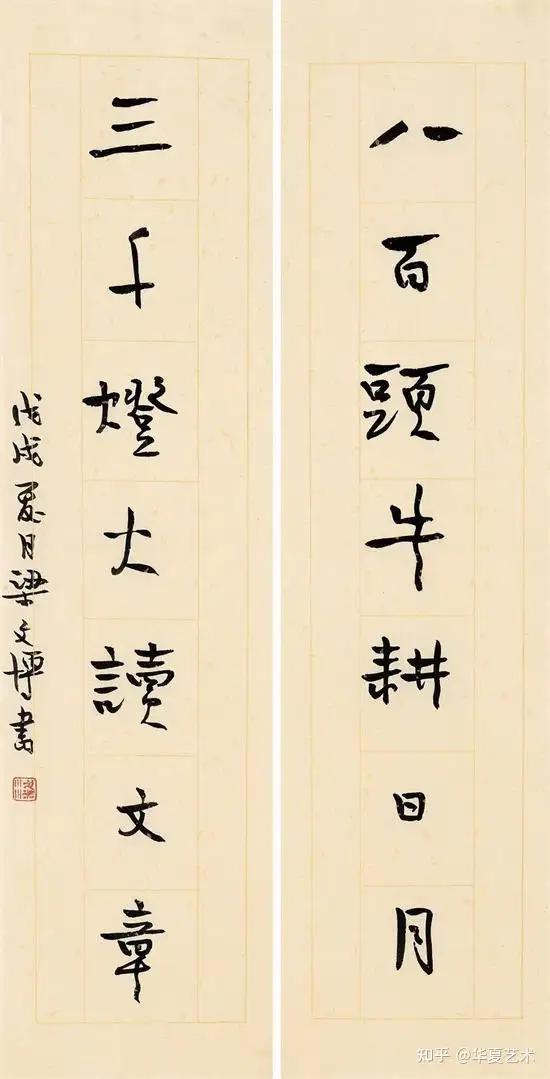 八百頭牛耕日月
三千燈火讀文章
戊戌夏月梁文博書
知乎 @华夏艺术